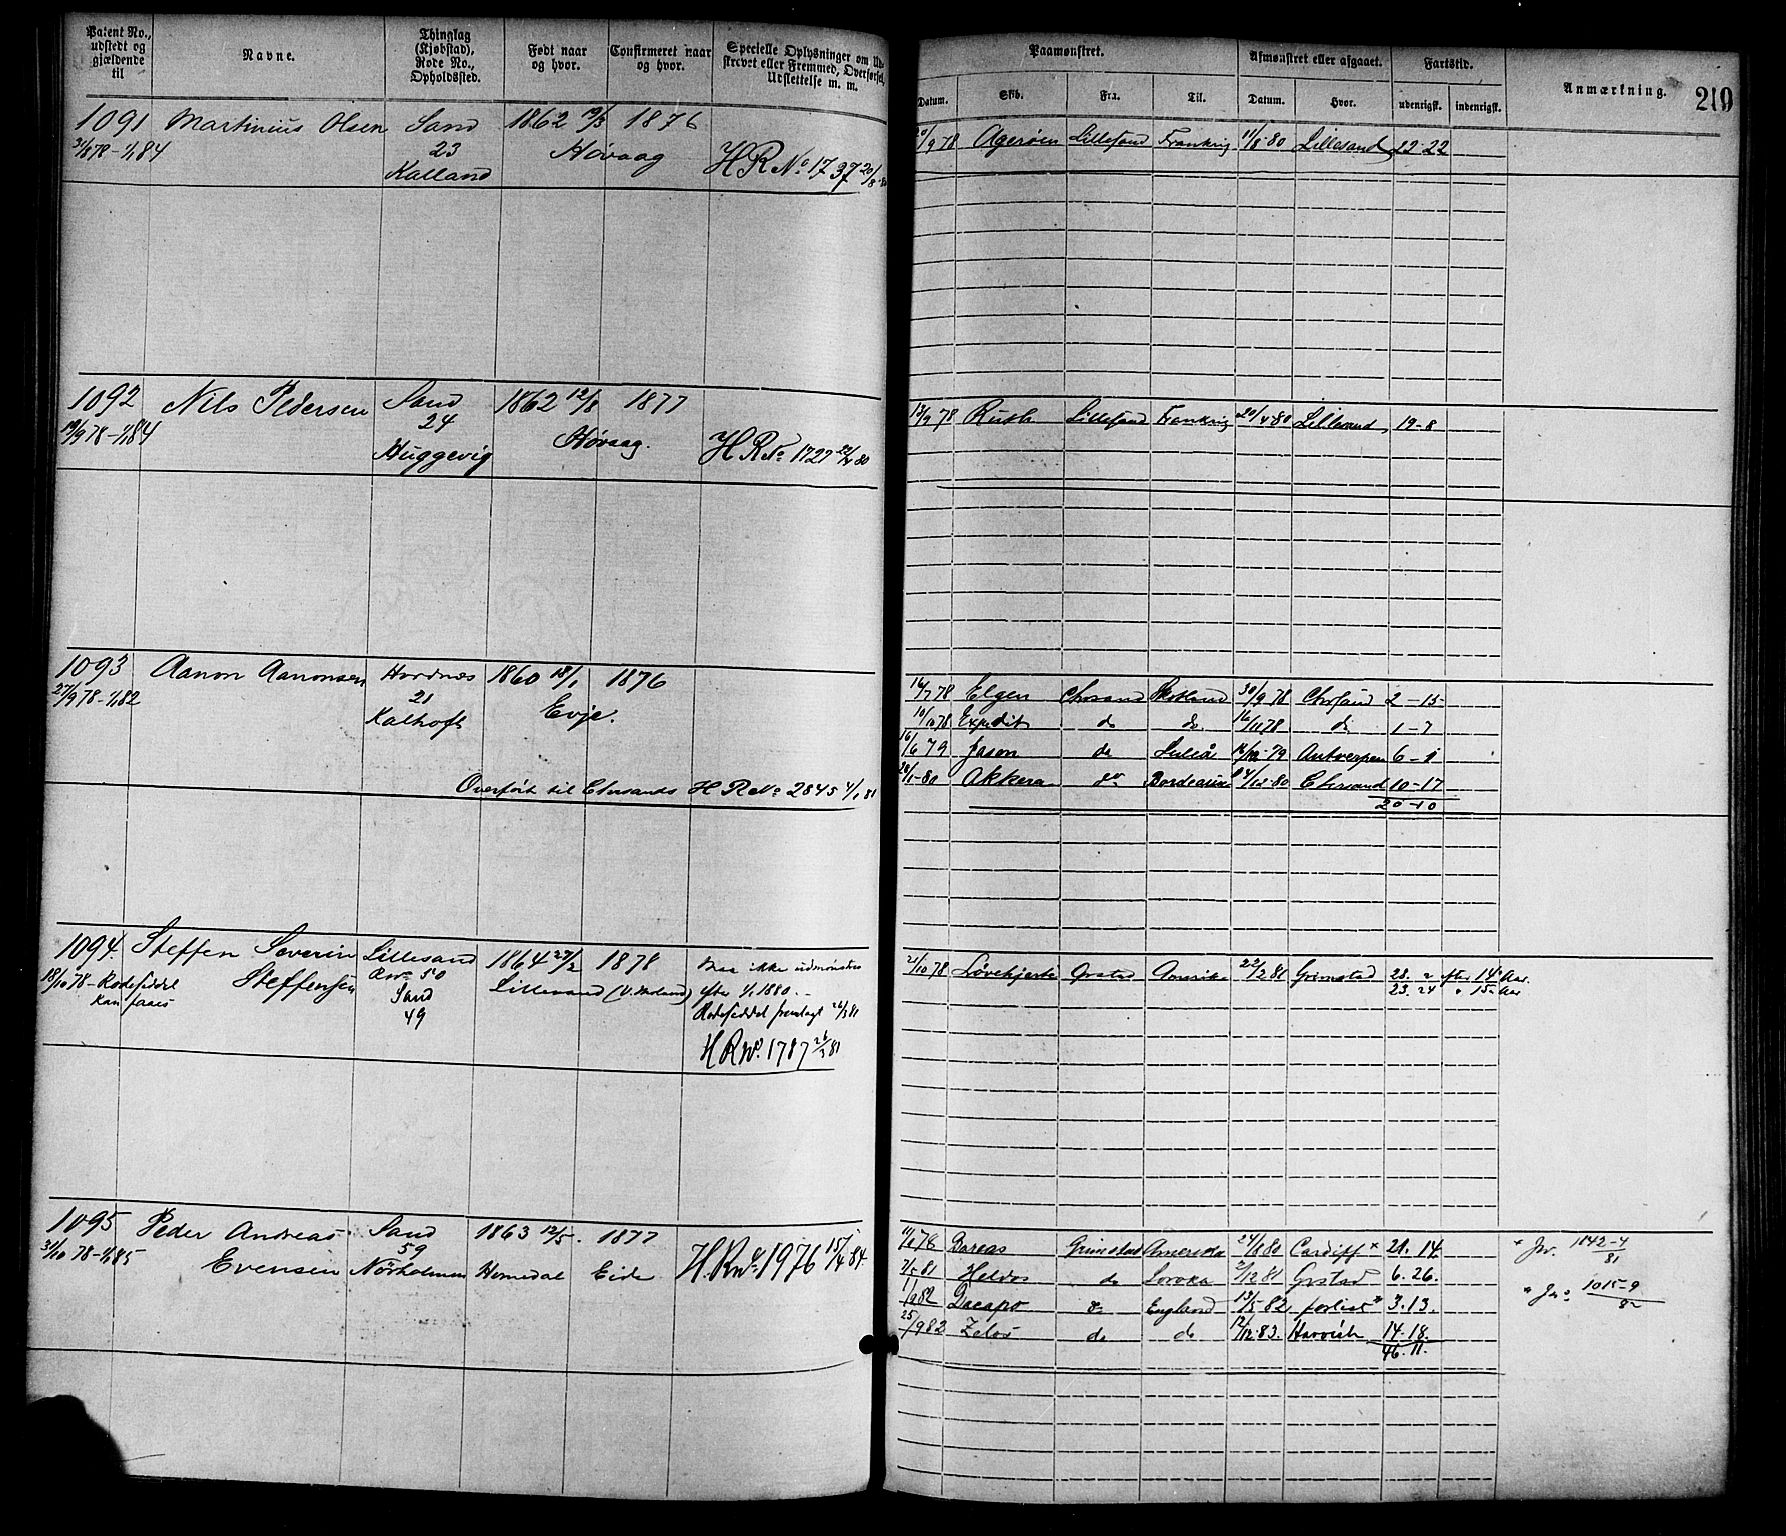 Patent No., udstedt og gjældende til
Navne.
Thinglag (Kjøbstad), Rode No., Opholdssted.
Født naar og hvor.
Confirmeret naar og hvor.
Specielle Oplysninger om Ud-
skrevet eller Fremmed, Overførsel,
Udslettelse m. m.
Paamønstret.
Datum. Skib. Fra. Til.
Afmønstret eller afgaaet.
Datum. Hvor.
Fartstid.
udenrigsk. indenrigsk.
Anmærkning.
219
1091 Martinius Olsen Sand 1862 19/3 1876
31/8 78-1/1 84 23 Høvaag H R No. 1737 20/8 80
Kalland
20/9 78 Agerøen Lillesand Frankrig 11/8-80 Lillesand 22-22
1092 Nils Pedersen Sand 1862 12/8 1877
19/9 78-1/1 84 24 Høvaag. H R No. 1727 22/4 80
Huggevig
13/9 78 Ruth Lillesand Frankrig 20/4 80 Lillesand 19-8
1093 Aanon Aanonsen Hordnæs 1860 18/1 1876
27/9 78-1/1 82 21 Evje.
Kalhoft
Overført til Chrsands H R No. 2845 4/1 81
16/7 78 Elgen Chrsand Skotland 30/9 78 Chrsand 2-15
10/10 78 Expedit do do 16/11 78 do 1-7
16/6 79 Jason do Luleå 16/12-79 Antwerpen 6-1
28/1-80 Akkera do Bordeaux 24/12-80 Chrsand 10-17
20-10
1094. Steffen Severin Lillesand 1864 27/2 1878
18/10 78-Rodeseddel Steffensen Rno 50 Lillesand (V. Moland)
kan faaes Sand
49
Maa ikke udmønstres
efter 1/1 1880.
Rodeseddel fremlagt 26/3 81
H R No. 1787 26/3 81
21/10 78 Løvehjerte Grstad Amerika 22/2 81 Grimstad 28. 2 efter 14 Aar.
23. 24 " 15 Aar
1095 Peder Andreas Sand 1863 12/5. 1877
31/10 78-1/1 85 Evensen 59 Homedal Eide H. R No. 1976 15/4 84.
Nörholmen
11/11 78 Boreas Grimstad Amerika 24/8 80 Cardiff × 21. 14
7/5-81 Heldos do Soroka 2/12 81 Grstad 6. 26.
1/2 82 Dacapo do England 13/5-82 forlist × 3. 13.
25/9 82 Zelos do do 12/12-83. Harwich 14. 18.
46. 11.
× Jno. 1842-4/81
× Jno. 1015-9/82